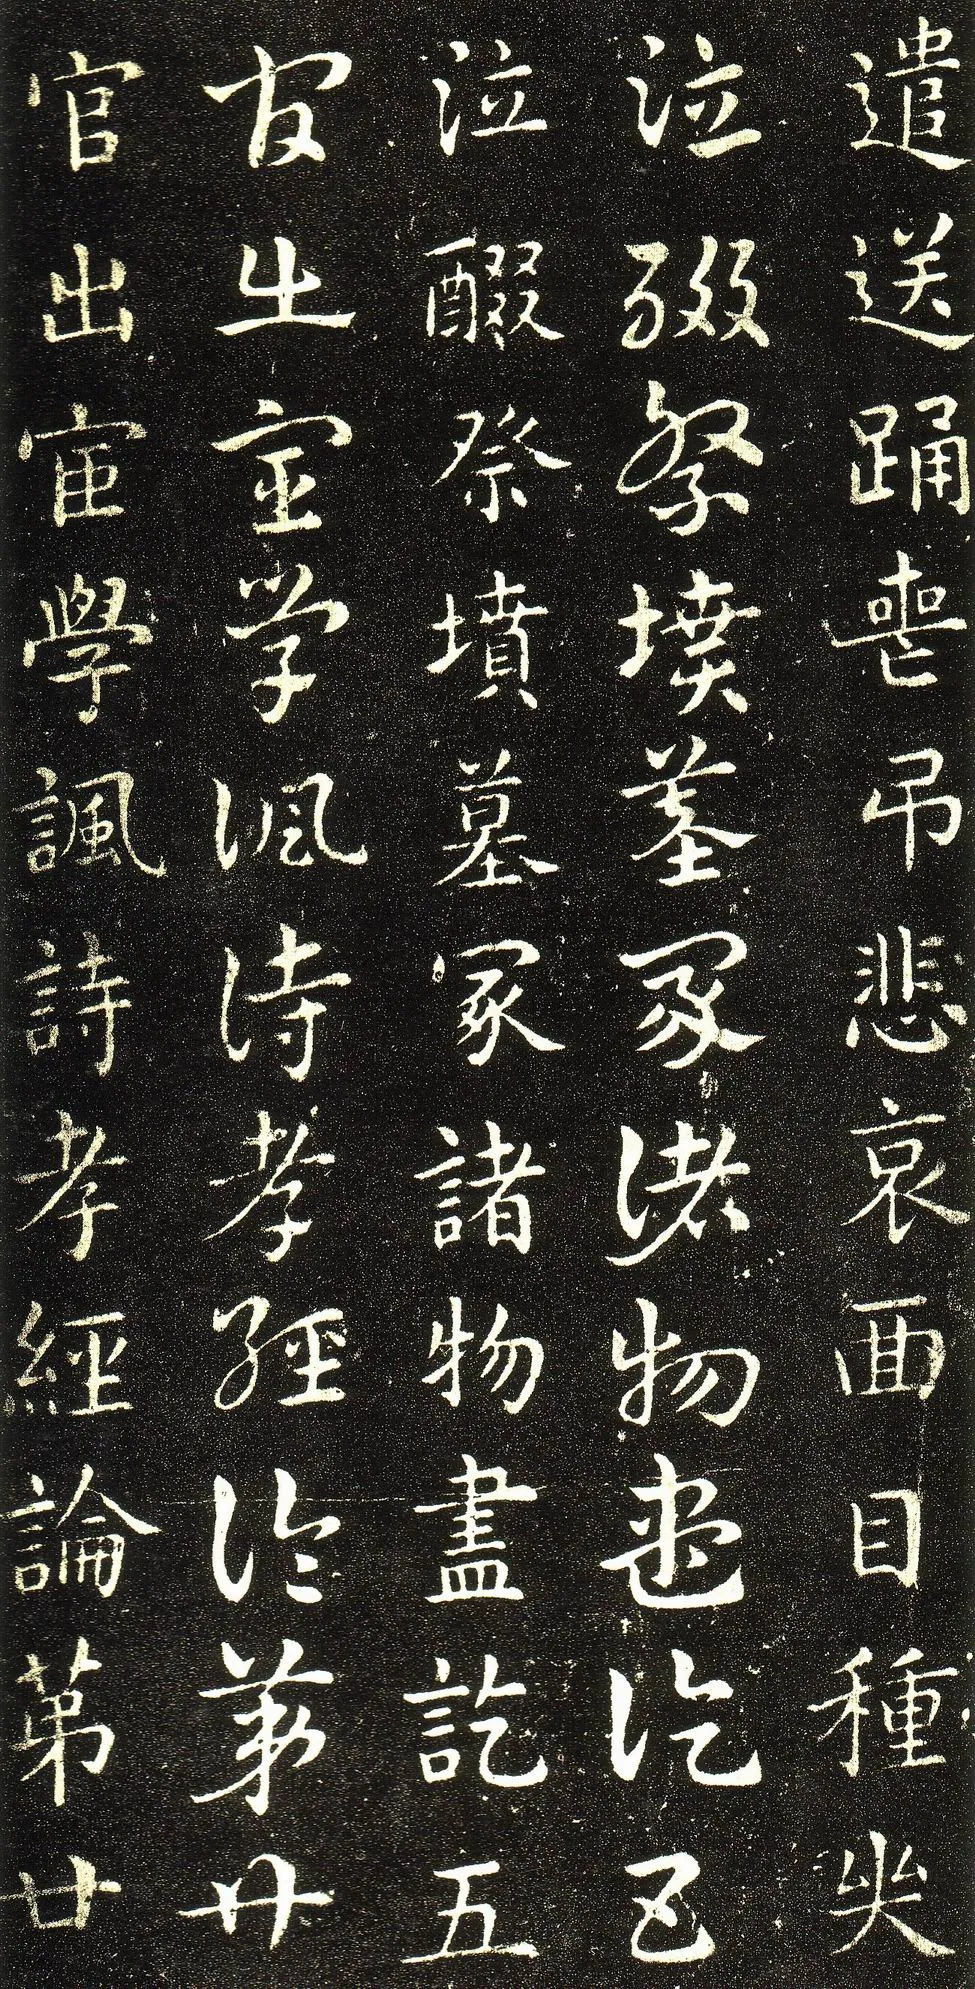 遣送踊喪弔悲哀面目種尖
泣醊祭墳墓冢諸物盡訖五
泣醊祭墳墓冢諸物盡訖五
宦出宦學諷詩孝經論第廿
官出宦學諷詩孝經論第廿